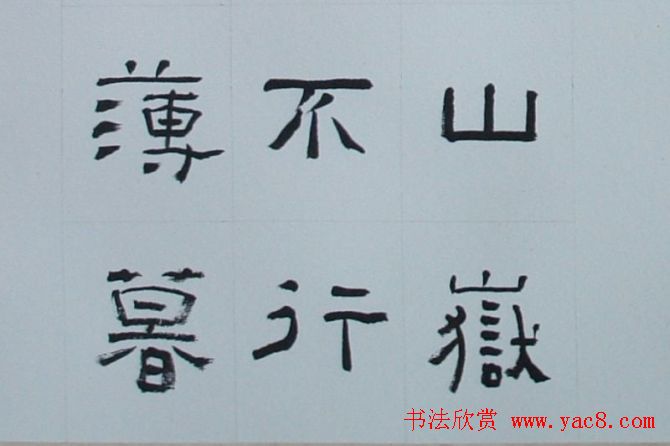 山嶽
不行
薄暮
书法欣赏 www.yac8.com